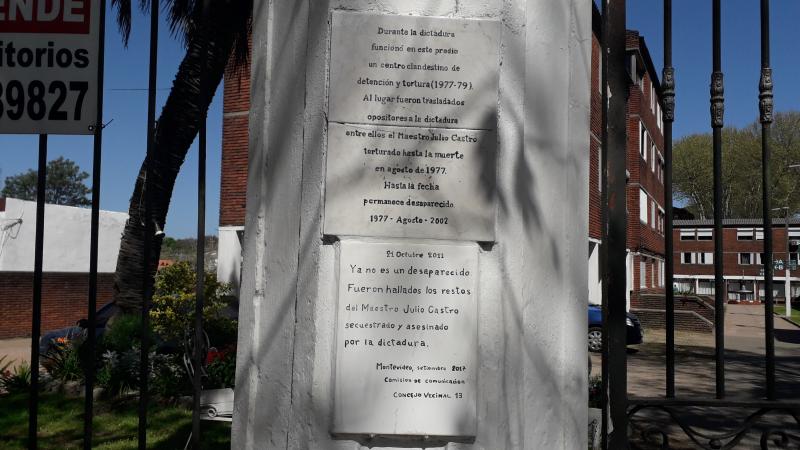 ENDE
itorios
89827
Durante la dictadura
funcionó en este predio
un centro clandestino de
detención y tortura (1977-79).
Al lugar fueron trasladados
opositores a la dictadura
entre ellos el Maestro Julio Castro
torturado hasta la muerte
en agosto de 1977.
Hasta la fecha
permanece desaparecido.
1977 - Agosto - 2002
21 Octubre 2011
Ya no es un desaparecido.
Fueron hallados los restos
del Maestro Julio Castro
secuestrado y asesinado
por la dictadura.
Montevideo, setiembre 2017
Comisión de comunicación
CONCEJO VECINAL 13